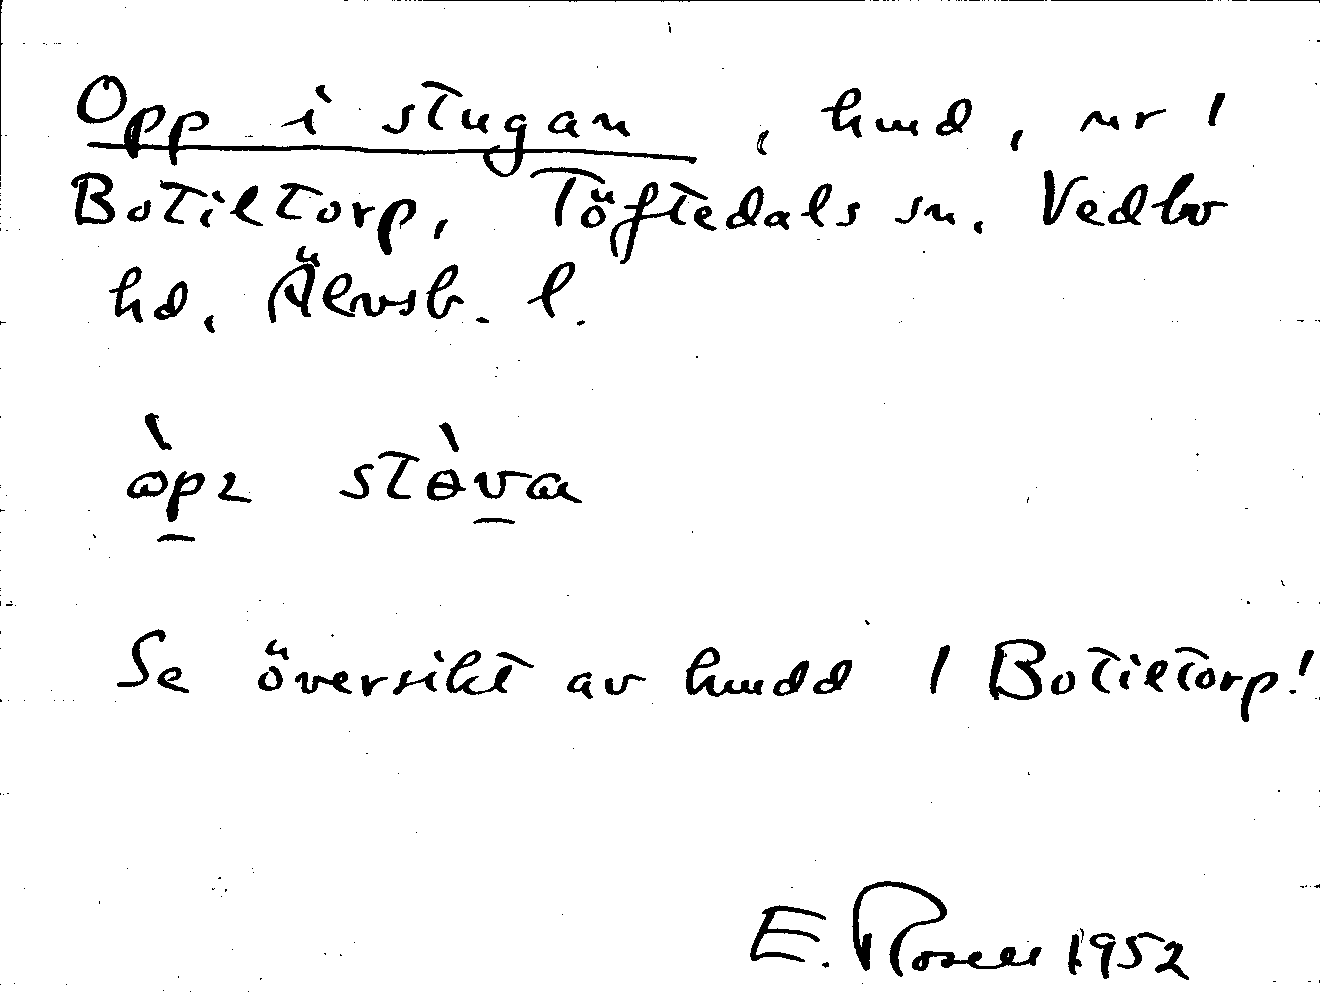 Opp i stugan, hmd, nr 1
Botiltorp, Töftedals sn. Vedbo
hd, Älvsb. l.
òpı stòva
Se översikt av hmdd 1 Botiltorp!
E. Rosell 1952